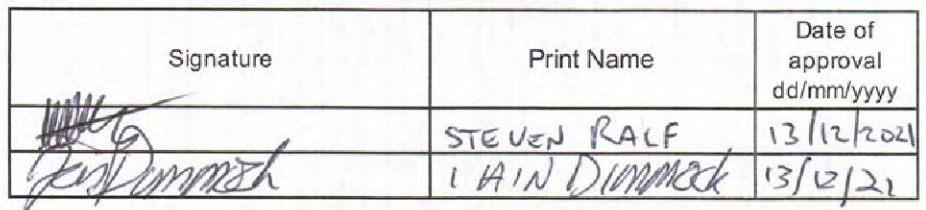 Signature Print Name Date of
approval
dd/mm/yyyy
STEVEN RALF 13/12/2021
Iain Dimmock IAIN DIMMOCK 13/12/21